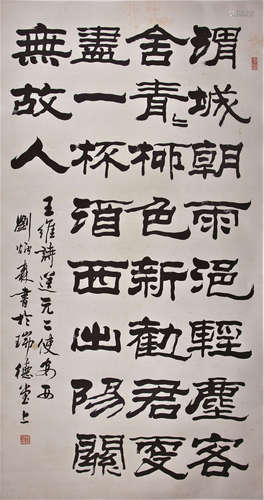 渭城朝雨浥輕塵客
舍青〻柳色新勸君更
盡一杯酒西出陽關
無故人
王維詩送元二使安西
劉炳森書於瑞德堂上